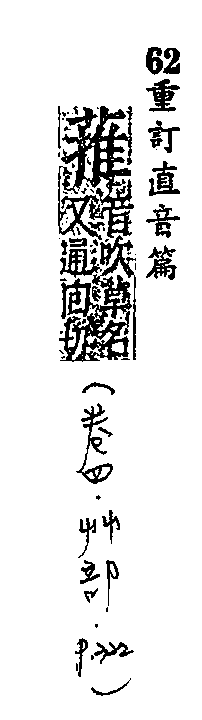 62 重訂直音篇
蓷
音吹草名
又通回切
(卷四.艸部.P.222)